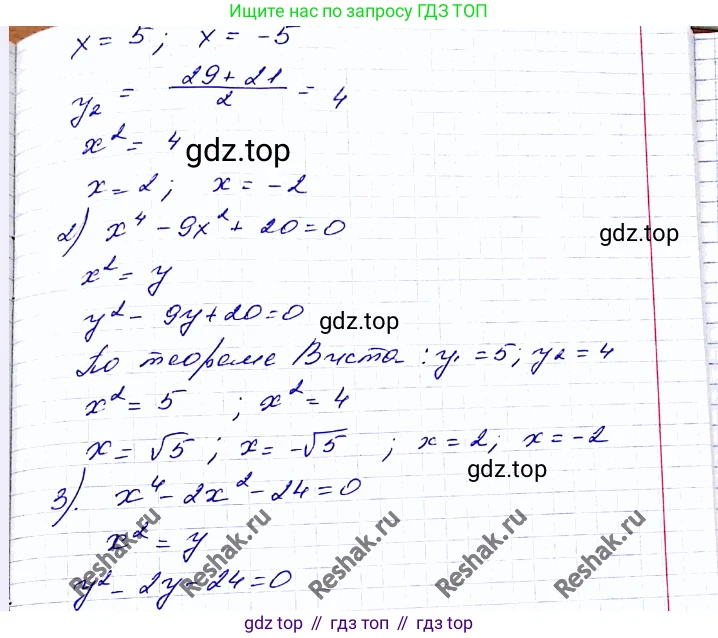 Ищите ответы по запросу ГДЗ ТОП
x = 5; x = -5
y₂ = (29+21)/2 = 4
x² = 4
gdz.top
x = 2; x = -2
2) x⁴ - 9x² + 20 = 0
gdz.top
x² = y
y² - 9y + 20 = 0
gdz.top
По теореме Виета: y₁ = 5; y₂ = 4
x² = 5 ; x² = 4
x = √5; x = -√5 ; x = 2; x = -2
gdz.top
3). x⁴ - 2x² - 24 = 0
x² = y
y² - 2y - 24 = 0
Reshak.ru Reshak.ru Reshak.ru Reshak.ru Reshak.ru
gdz.top // гдз топ // gdz.top